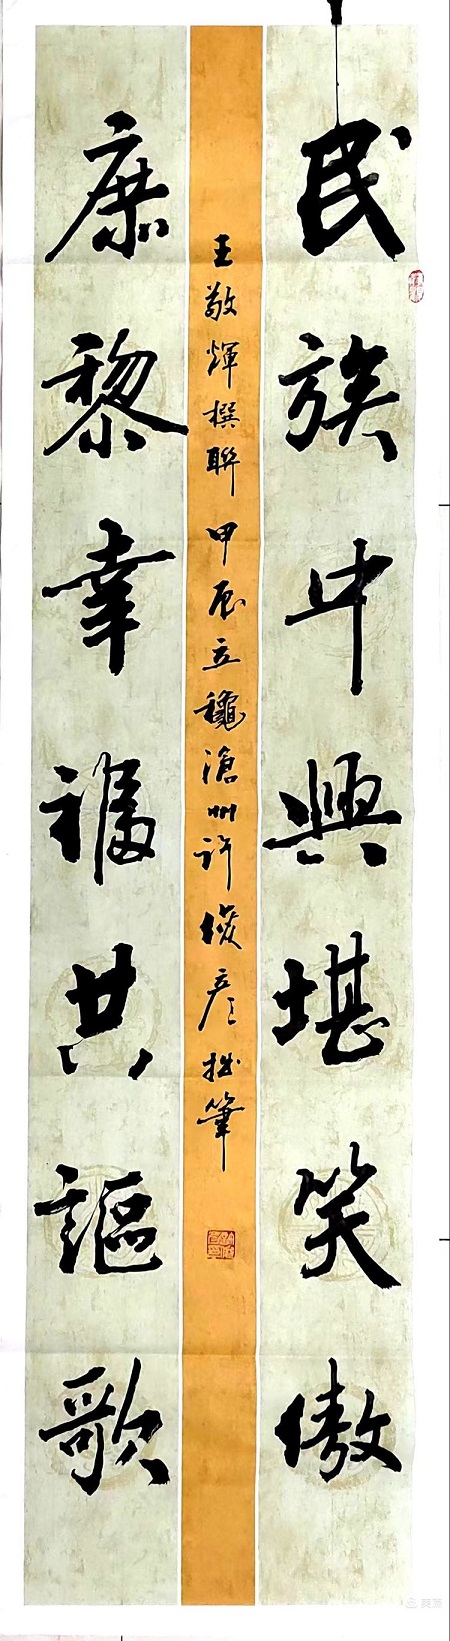 民族中興堪笑傲
庶黎幸福共謳歌
王敬輝撰聯 甲辰立龝滄州许俊彥拙筆
美篇